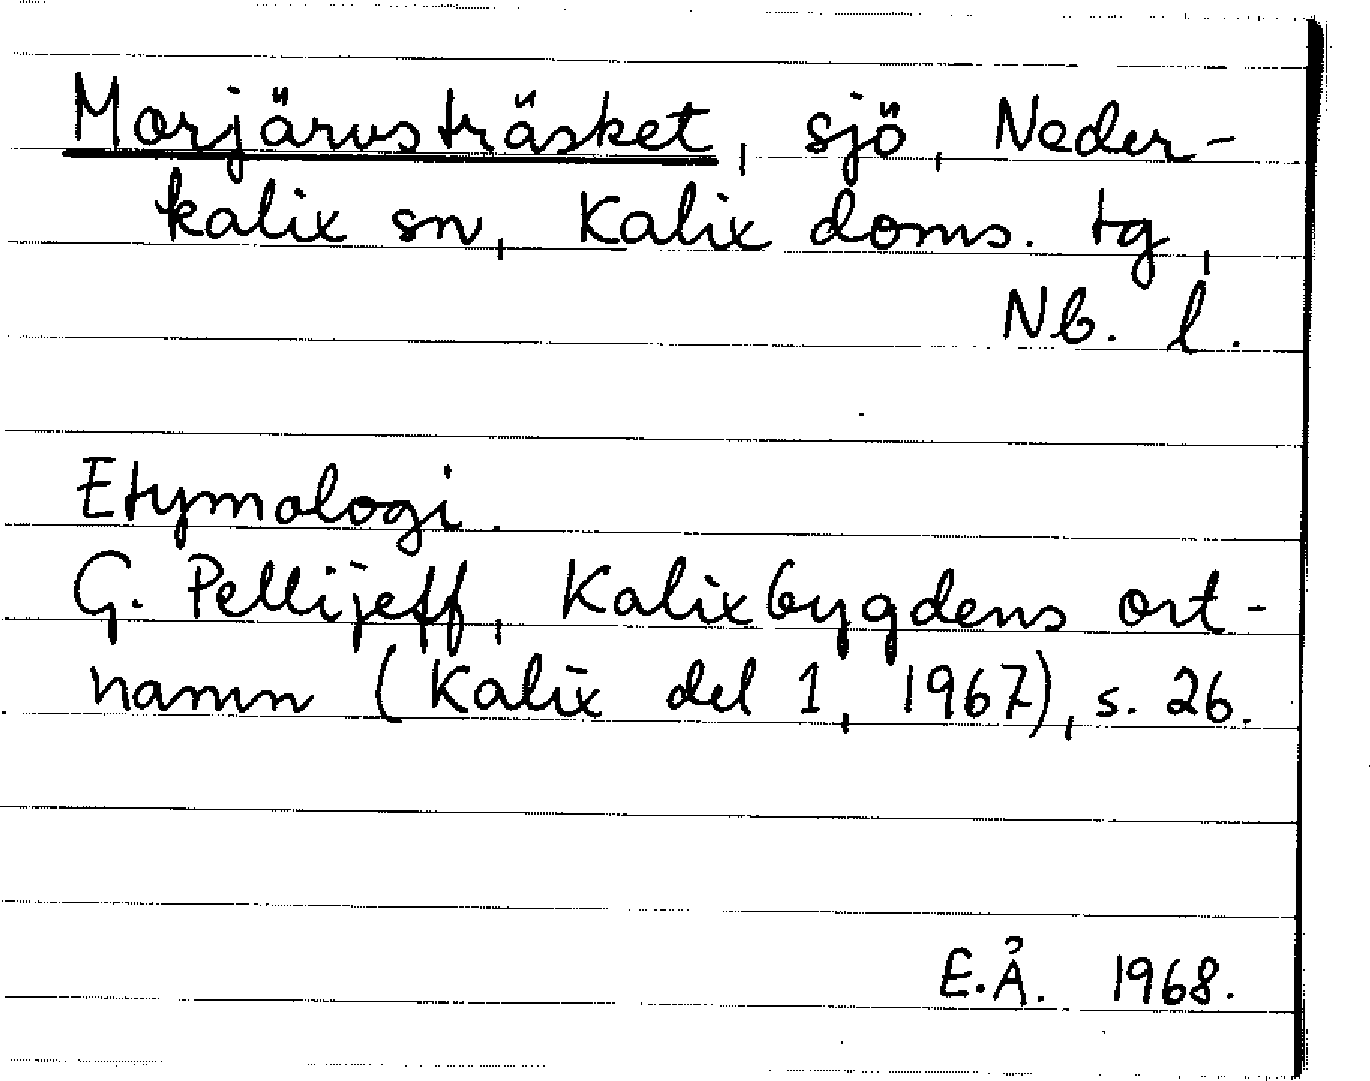 Morjärvsträsket, sjö, Neder-
kalix sn, Kalix doms. tg,
Nb. l.
Etymologi.
G. Pellijeff, Kalixbygdens ort-
namn (Kalix del 1, 1967), s. 26.
E.Å. 1968.